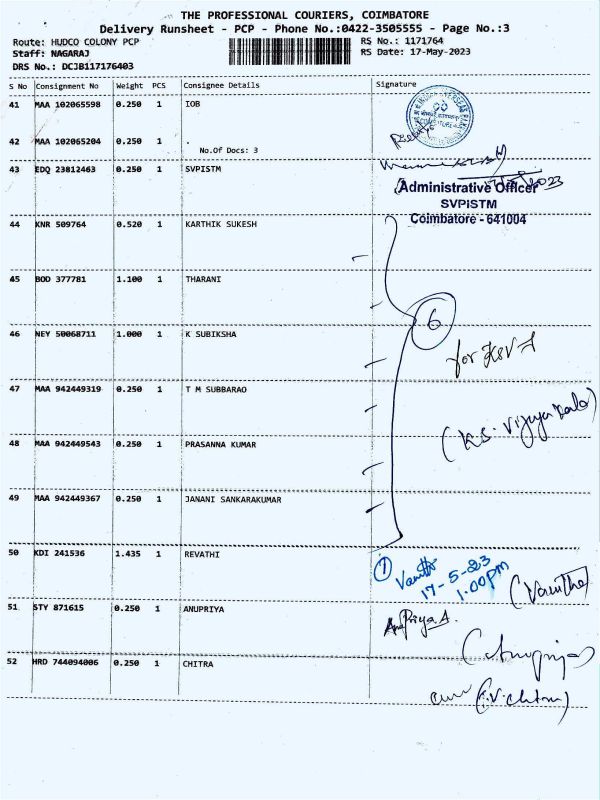 THE PROFESSIONAL COURIERS, COIMBATORE
Delivery Runsheet - PCP - Phone No.:0422-3505555 - Page No.:3
Route: HUDCO COLONY PCP
Staff: NAGARAJ
DRS No.: DCJB117176403
RS No.: 1171764
RS Date: 17-May-2023
S No Consignment No Weight PCS Consignee Details Signature
41 MAA 102065598 0.250 1 IOB
42 MAA 102065204 0.250 1 .
No.Of Docs: 3
43 EDQ 23812463 0.250 1 SVPISTM
Administrative Officer
SVPISTM
Coimbatore - 641004
44 KNR 509764 0.520 1 KARTHIK SUKESH
45 BOD 377781 1.100 1 THARANI
6
46 NEY 50068711 1.000 1 K SUBIKSHA
for
47 MAA 942449319 0.250 1 T M SUBBARAO
(K.S. Vijaya
48 MAA 942449543 0.250 1 PRASANNA KUMAR
49 MAA 942449367 0.250 1 JANANI SANKARAKUMAR
50 KDI 241536 1.435 1 REVATHI
1
17-5-23
1.00pm
(Vanitha)
51 STY 871615 0.250 1 ANUPRIYA
AnuPriya.A.
(Anupriya)
52 HRD 744094006 0.250 1 CHITRA